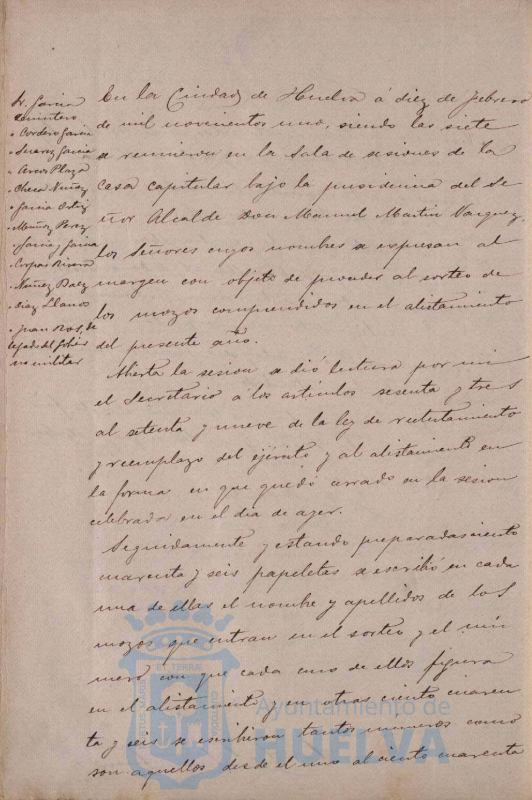 Sr. Garcia
Seminterio
" Cordero Garcia
" Suarez Garcia
" Arcos Plaza
" Checa Nuñez
" Garcia Ortiz
" Muñoz Perez
" Garcia y Garcia
" Corpas Rivera
" Nuñez Baez
" Diaz Llanos
" Juan Ros, de
legado del gobier
no militar
En la Ciudad de Huelva á diez de Febrero
de mil novecientos uno, siendo las siete
se reunieron en la Sala de sesiones de la
Casa capitular bajo la presidencia del Se
ñor Alcalde Don Manuel Martin Vazquez,
los Señores cuyos nombres se expresan al
margen con objeto de proceder al sorteo de
los mozos comprendidos en el alistamiento
del presente año.
Abierta la sesion se dió lectura por mi
el Secretario á los articulos sesenta y tres
al setenta y nueve de la ley de reclutamiento
y reemplazo del ejército y al alistamiento en
la forma en que quedó cerrado en la sesion
celebrada en el dia de ayer.
Seguidamente y estando preparadas ciento
cuarenta y seis papeletas se escribió en cada
una de ellas el nombre y apellidos de los
mozos que entran en el sorteo y el nú
mero con que cada uno de ellos figura
en el alistamiento y en otras ciento cuaren
ta y seis se escribieron tantos numeros como
son aquellos desde el uno al ciento cuarenta
Ayuntamiento de
HUELVA